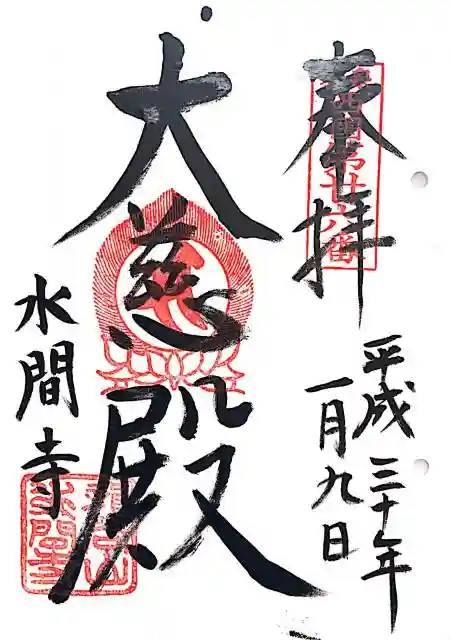 奉拝
平成三十年
一月九日
大慈殿
水間寺